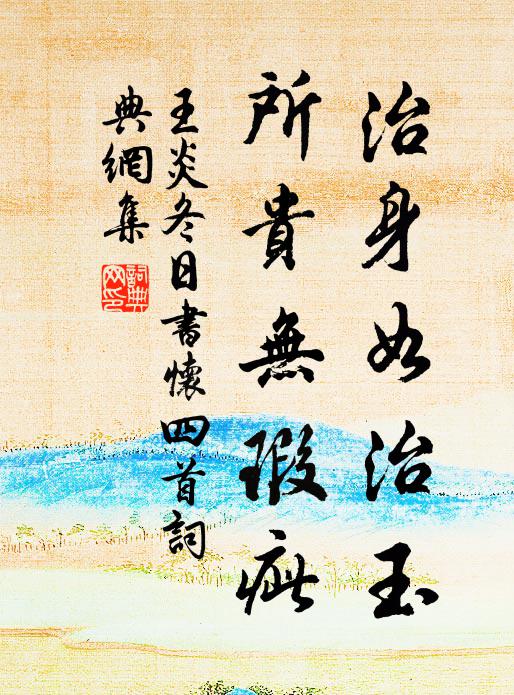 治身如治玉
所貴無瑕疵
王炎冬日書懷四首詞
典網集
詞典網印